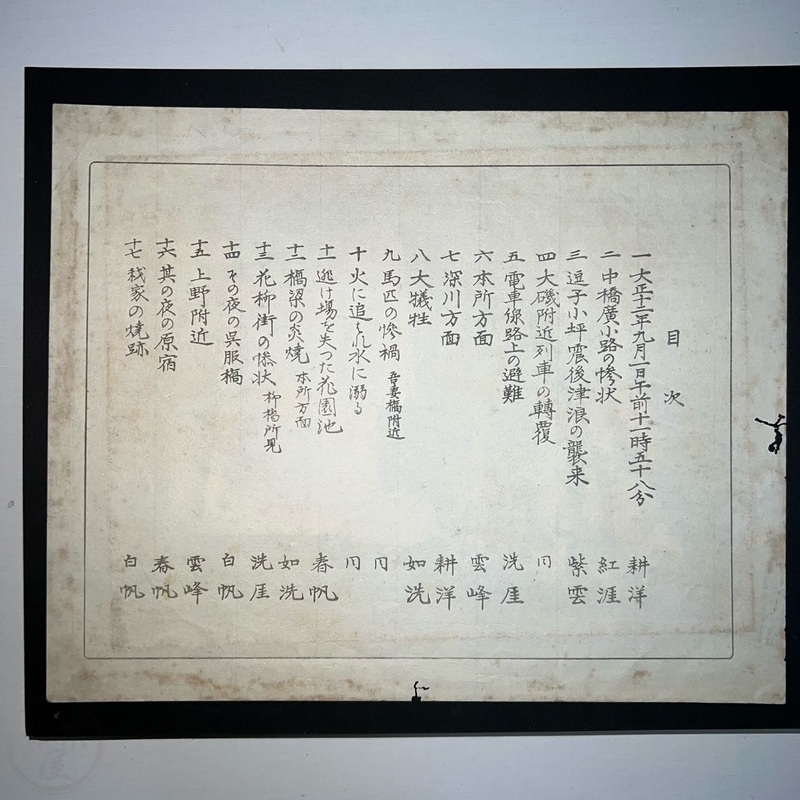 目次
一 大正十二年九月一日午前十一時五十八分 耕洋
二 中橋廣小路の惨状 紅涯
三 逗子小坪震後津浪の襲来 紫雲
四 大磯附近列車の轉覆 同
五 電車線路上の避難 洗厓
六 本所方面 雲峰
七 深川方面 耕洋
八 大犠牲 如洗
九 馬匹の惨禍 吾妻橋附近 同
十 火に追はれ水に溺る 同
十一 逃け場を失つた花園池 春帆
十二 橋梁の炎焼 本所方面 如洗
十三 花柳街の惨状 柳橋所見 洗厓
十四 その夜の呉服橋 白帆
十五 上野附近 雲峰
十六 其の夜の原宿 春帆
十七 我家の焼跡 白帆